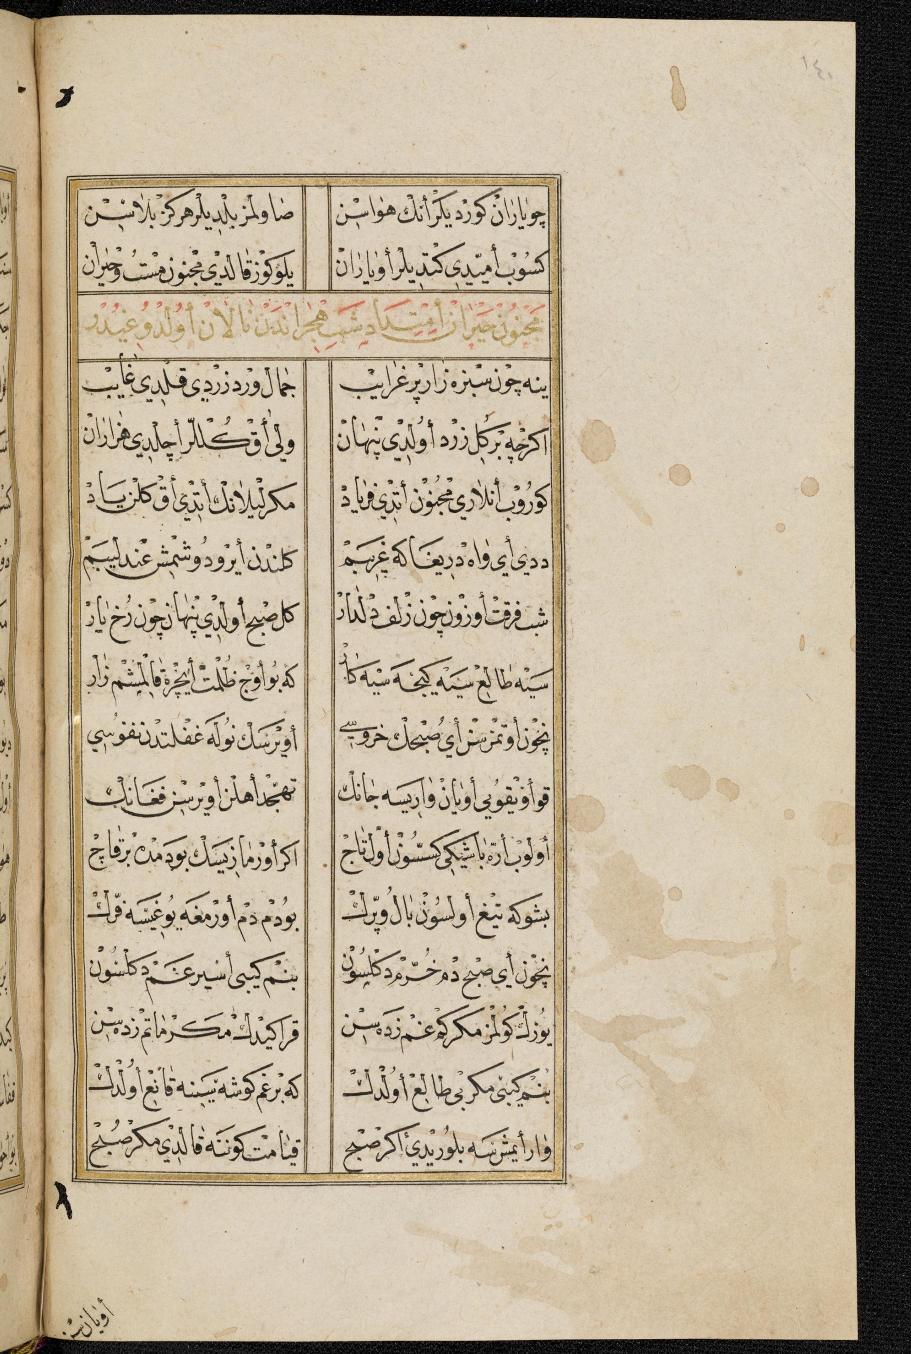 ١٤٠
چو یاران کوردیلر أنك هواسن صاولمز بلدیلر هرکز بلاسن
کسوب أمیدی کتدیلر أو یاران یلوکوز قالدی مجنون مست و حیران
مجنون حیران أمتداد شب هجراندن نالان أولدوغیدر
ینه چون سبزه زار پر غرایب جمال ورد زردی قلدی غایب
اکرچه بر کل زرد أولدی پنهان ولی أق کللر أچلدی هزاران
کوروب أنلاری مجنون أتدی فریاد مکر لیلانك أتدی أق کلن یاد
ددی أی واه دریغا که غریبم کلندن أیرو دوشمش عندلیبم
شب فرقت أوزون چون زلف دلدار کل صبح أولدی پنهان چون رخ یار
سیه طالع سیه کیجه سیه کار که بو أوج ظلمت أیچره قالمشم زار
نچون أوتمزسن أی صبحك خروسی أویرسك نوله غفلتدن نفوسی
قو أویقویی أویان واریسه جانك تهجد أهلن أویرسن فغانك
أولوب أره باشیکی کستون أول تاج اکر أورمازیسك بو دمده بر قاچ
بشوکه تیغ أولسون بال و پرك بو دم دم أورمغه یوغیسه فرك
نچون أی صبح دم خرم دکلسون بنم کیبی أسیر غم دکلسون
یوزك کولمز مکر که غم زده سن قرا کیدك مکر ماتم زده سن
بنم کیبی مکر بی طالع أولدك که بر غم کوشه سینه قانع أولدك
وار أیمش سه بلوریدی أکر صبح قیامت کوننه قالدی مکر صبح
أویان سن